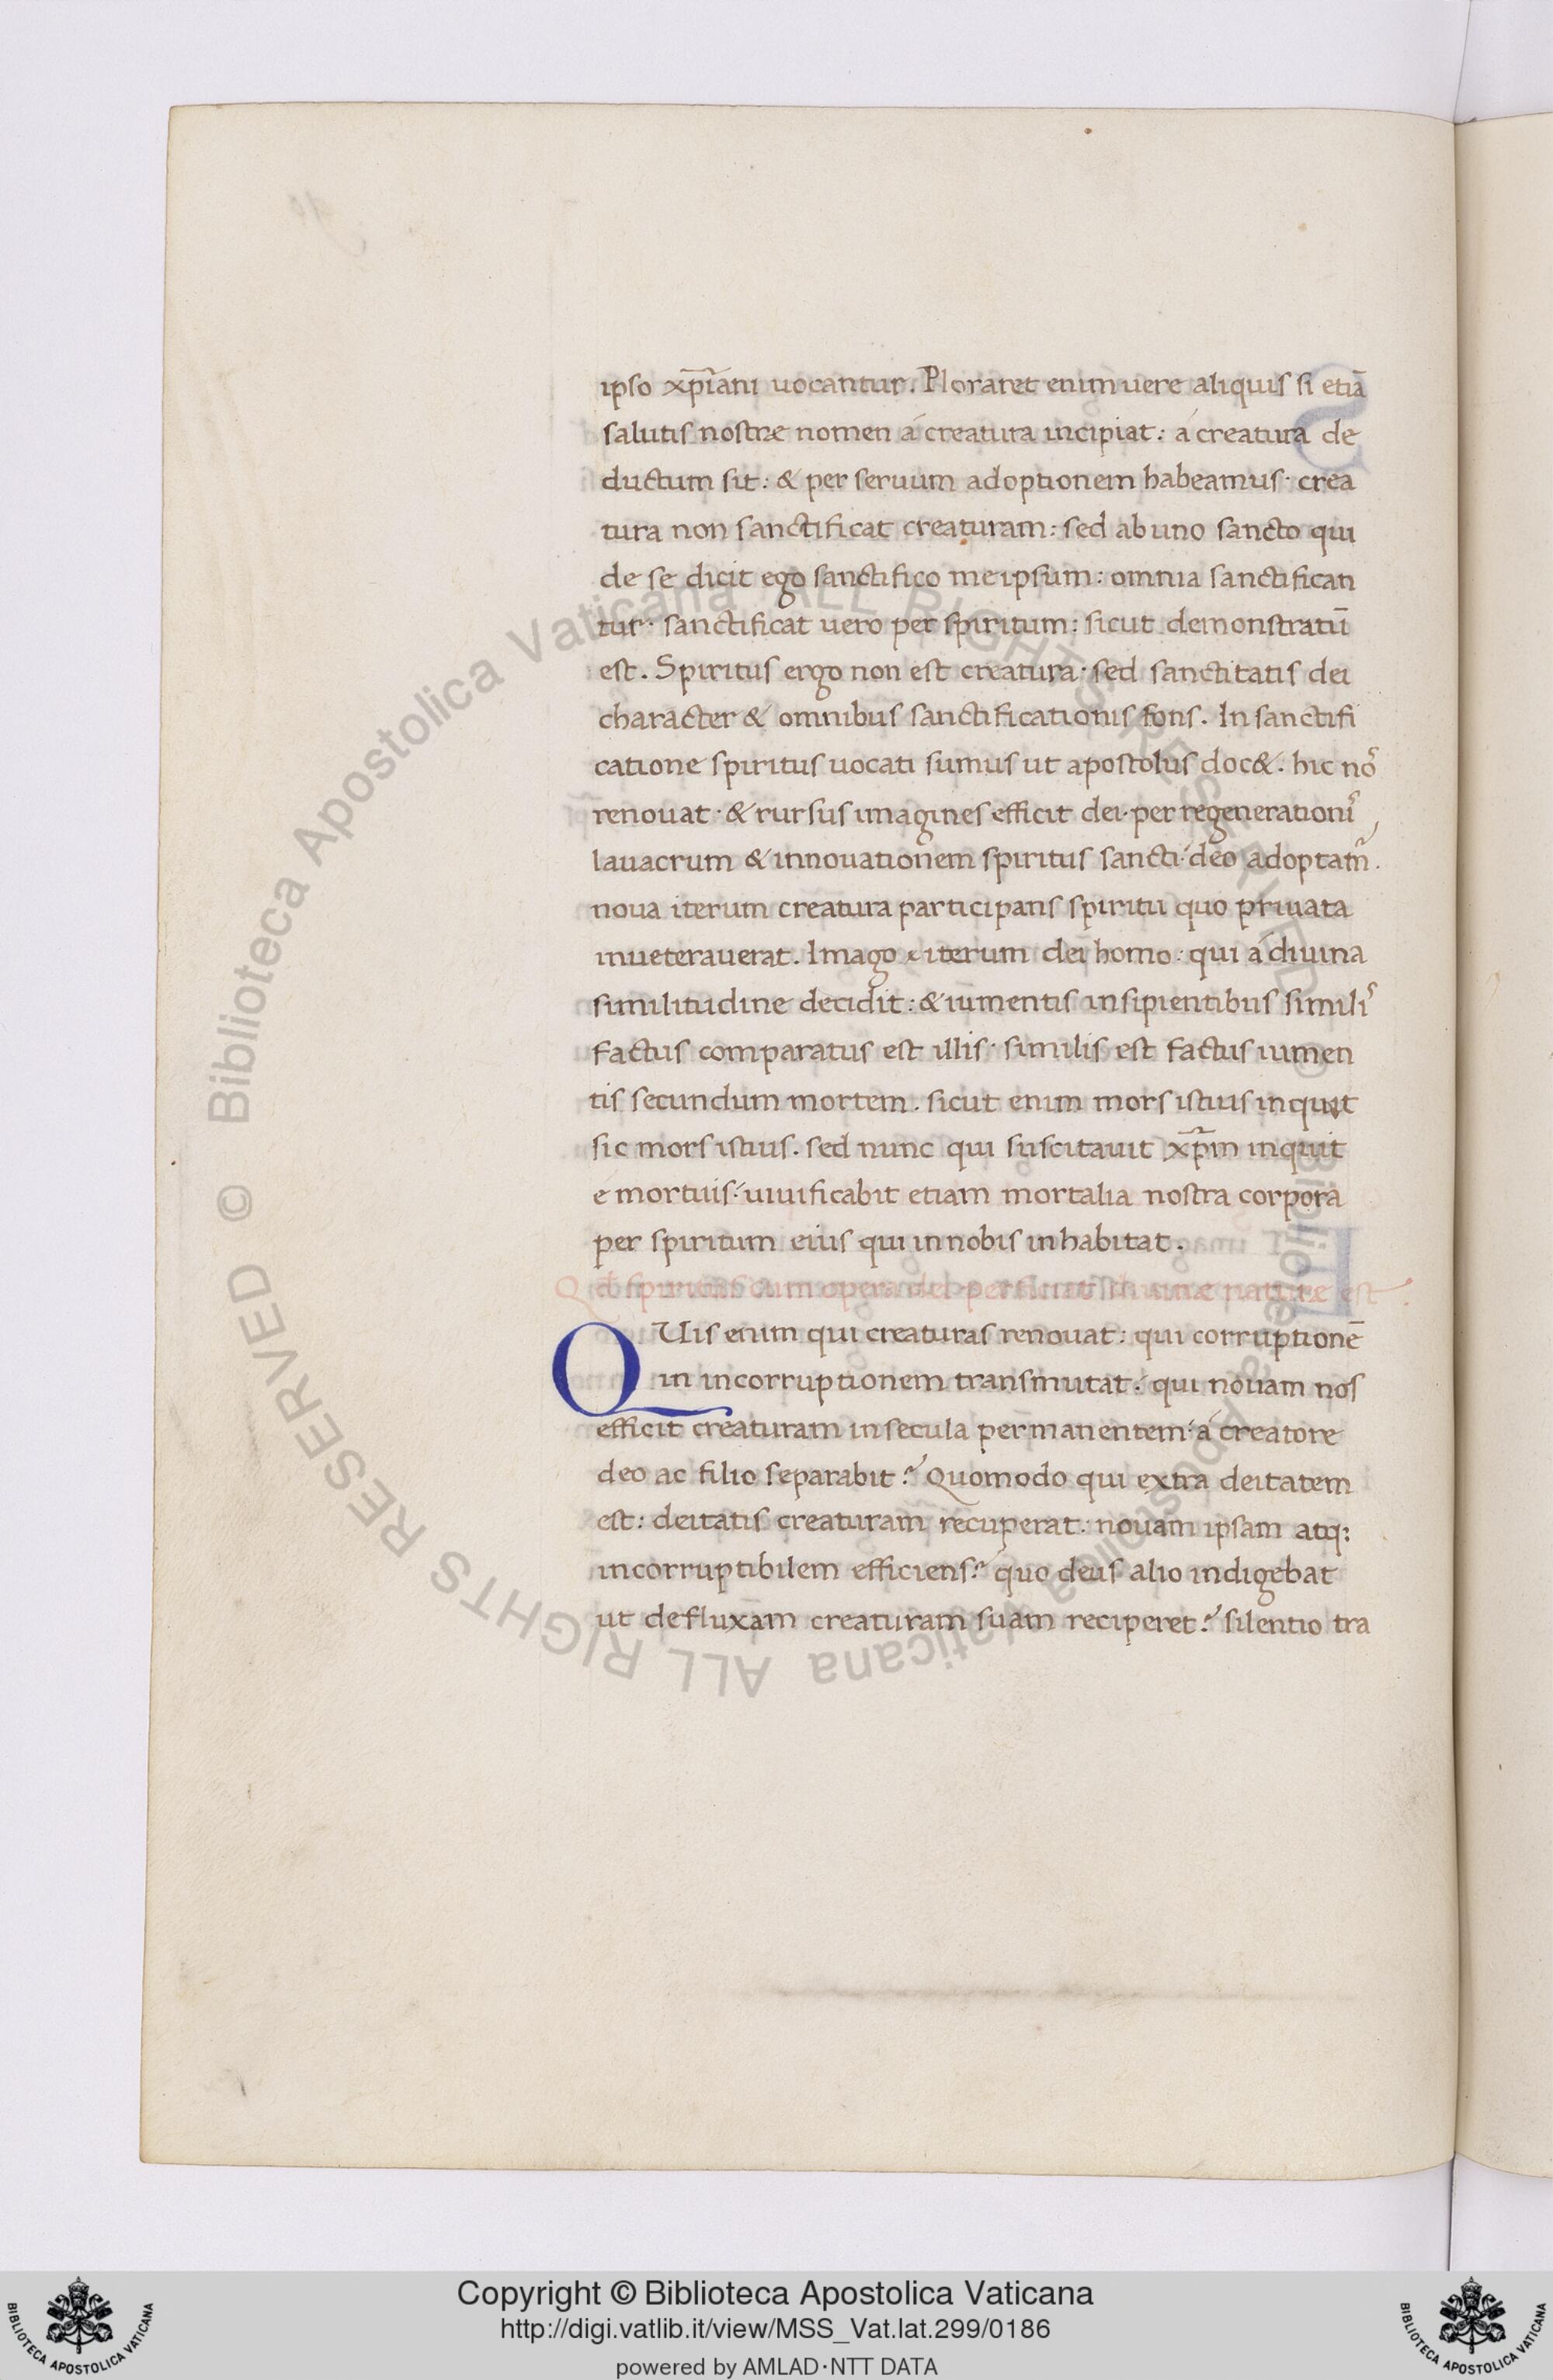 ipso xp̄iani uocantur. Ploraret enim uere aliquis si etiā
salutis nostræ nomen á creatura incipiat: á creatura de
ductum sit: & per seruum adoptionem habeamus· crea
tura non sanctificat creaturam: sed ab uno sancto qui
de se dicit ego sanctifico me ipsum: omnia sanctifican
tur· sanctificat uero per spiritum: sicut demonstratū
est. Spiritus ergo non est creatura· sed sanctitatis dei
character & omnibus sanctificationis fons. In sanctifi
catione spiritus uocati sumus ut apostolus doc&. hic nos
renouat· & rursus imagines efficit dei· per regenerationis
lauacrum & innouationem spiritus sancti· deo adoptamr̄.
noua iterum creatura participans spiritu quo priuata
inueterauerat. Imago iterum dei homo: qui á diuina
similitudine decidit: & iumentis insipientibus similis
factus comparatus est illis· similis est factus iumen
tis secundum mortem. sicut enim mors istius inquit
sic mors istius. sed nunc qui suscitauit xp̄m inquit
é mortuis: uiuificabit etiam mortalia nostra corpora
per spiritum eius qui in nobis inhabitat.
Qd̄ spiritus opera dei diuinæ naturæ est.
QUis enim qui creaturas renouat: qui corruptionē
in incorruptionem transmutat: qui nouam nos
efficit creaturam in secula permanentem: á creatore
deo ac filio separabit? Quomodo qui extra deitatem
est: deitatis creaturam recuperat: nouam ipsam atq;
incorruptibilem efficiens? quo deus alio indigebat
ut defluxam creaturam suam reciperet? silentio tra
Copyright © Biblioteca Apostolica Vaticana
http://digi.vatlib.it/view/MSS_Vat.lat.299/0186
powered by AMLAD·NTT DATA
BIBLIOTECA APOSTOLICA VATICANA
BIBLIOTECA APOSTOLICA VATICANA
© Biblioteca Apostolica Vaticana ALL RIGHTS RESERVED
© Biblioteca Apostolica Vaticana ALL RIGHTS RESERVED